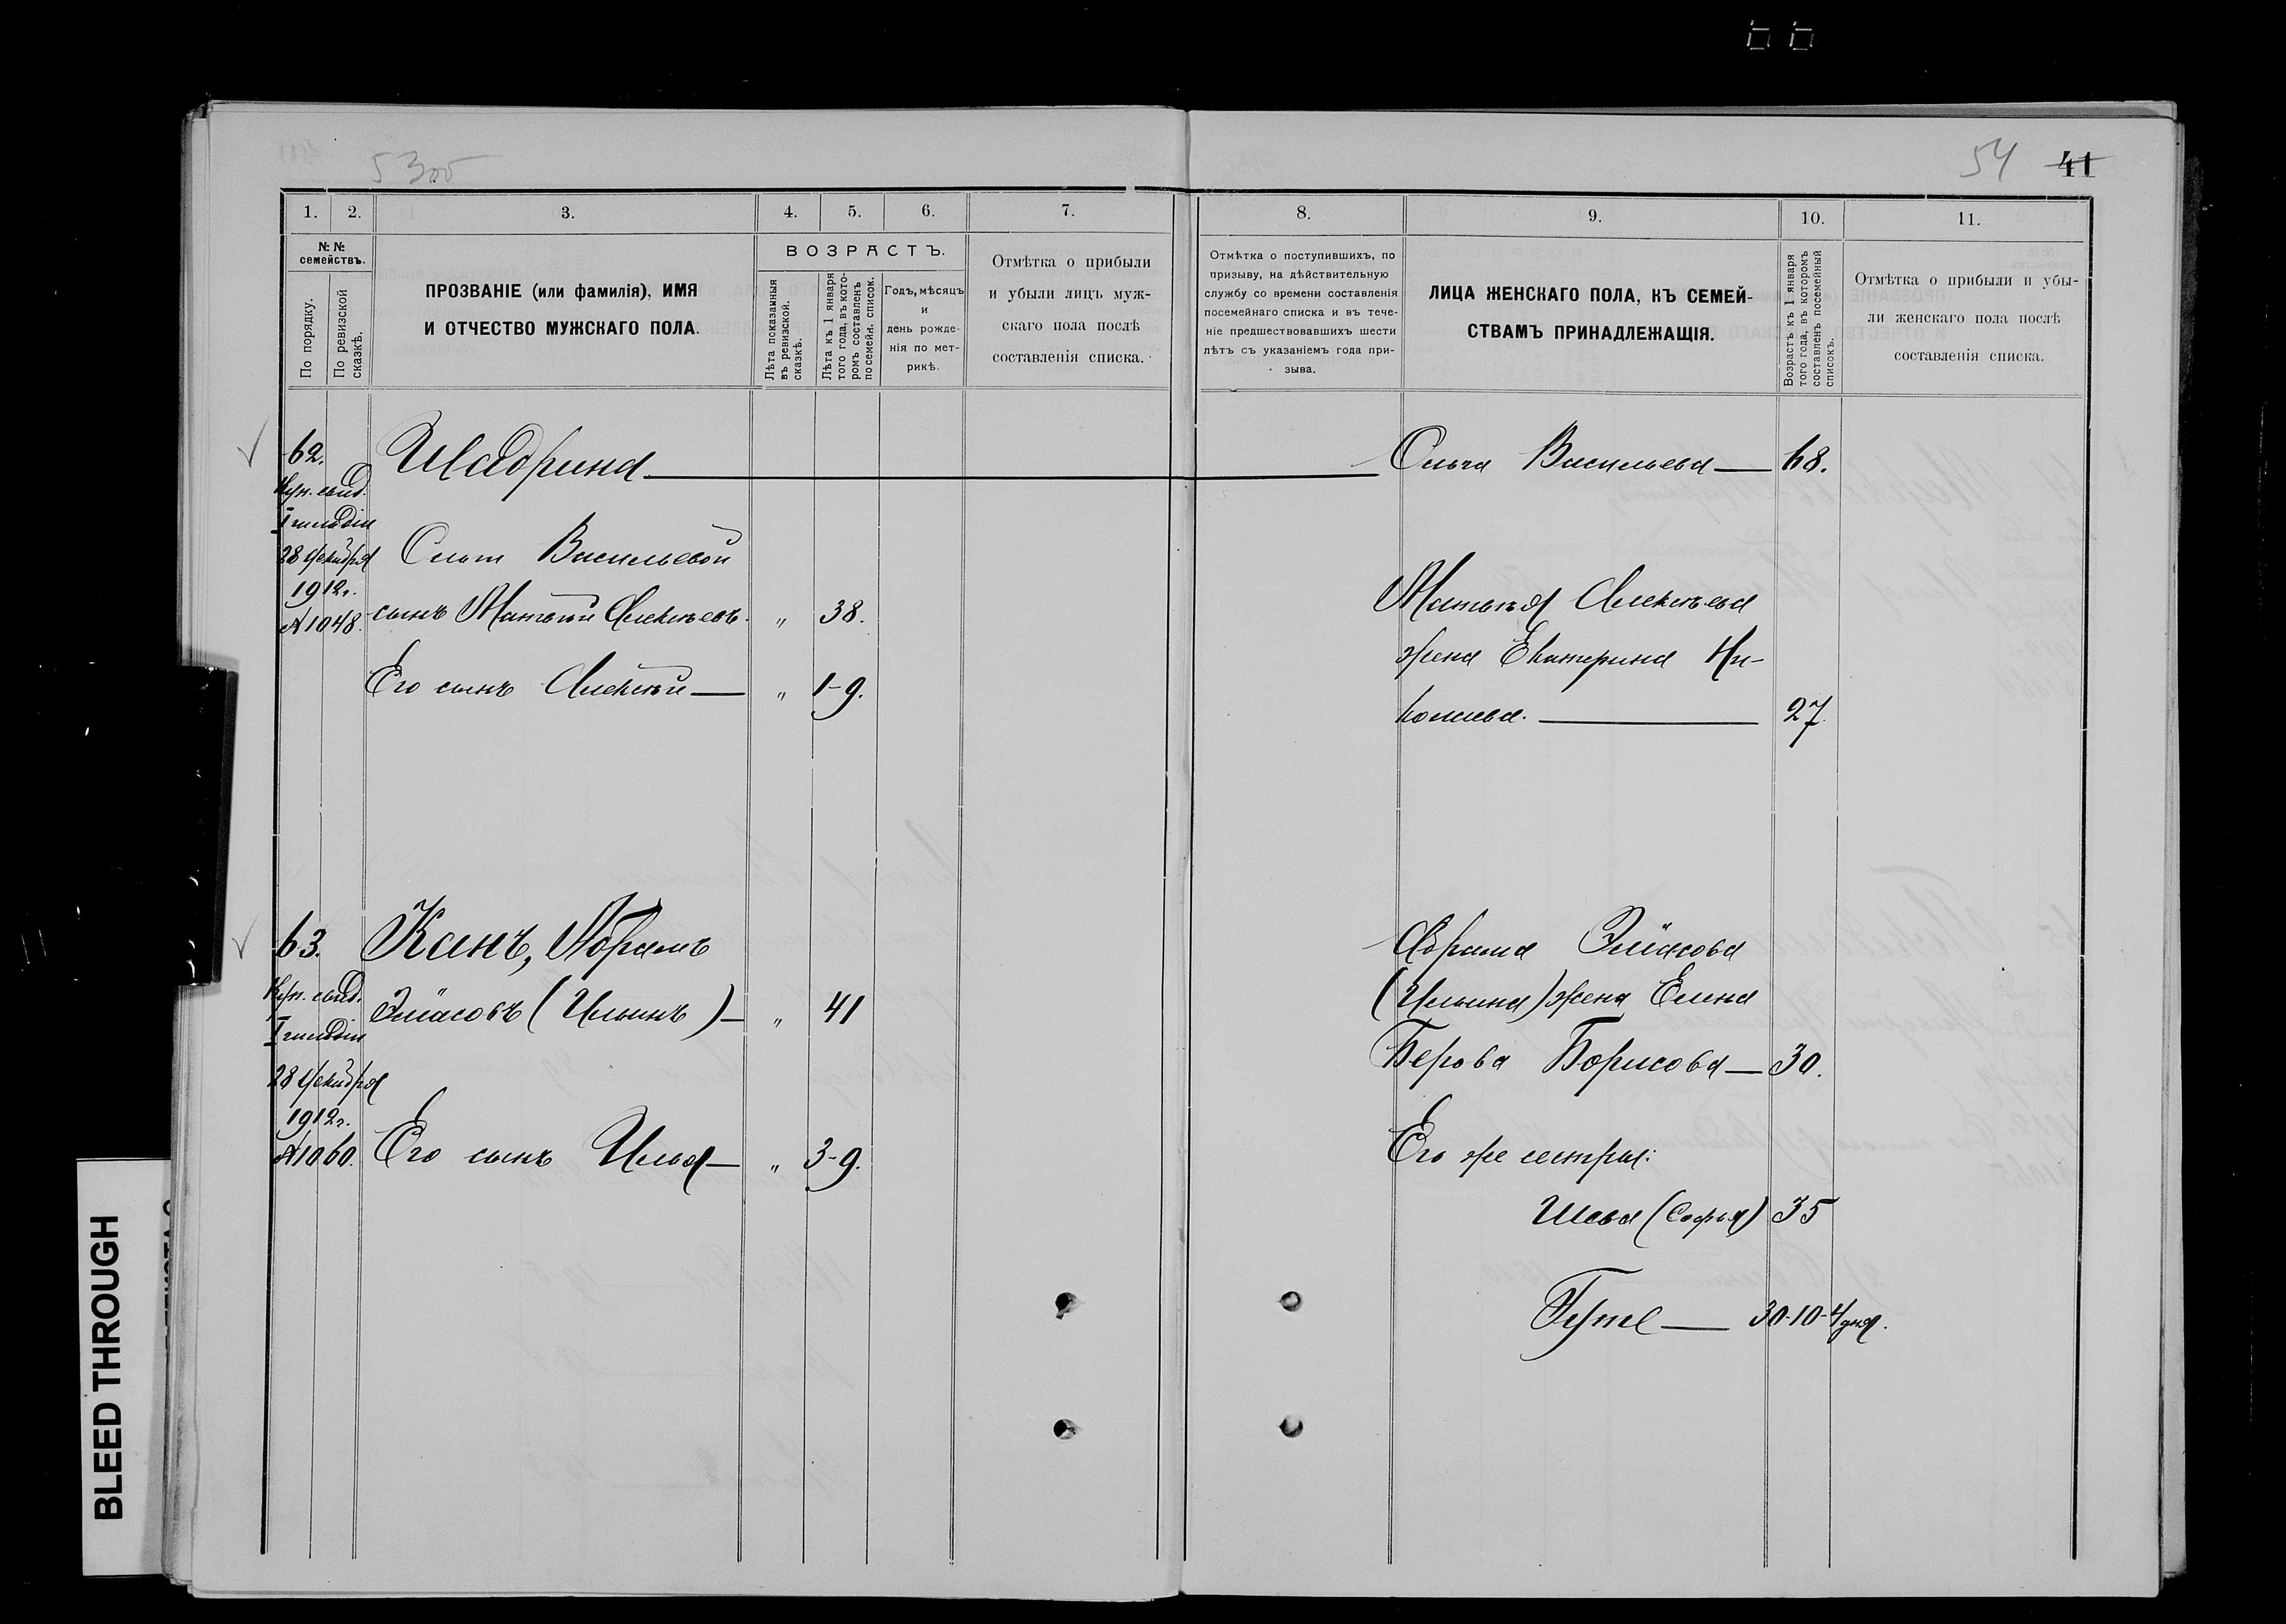 53об
54 41
1. 2. 3. 4. 5. 6. 7. 8. 9. 10. 11.
№№ семействъ.
По порядку.
По ревизской сказкѣ.
ПРОЗВАНІЕ (или фамилія), ИМЯ
И ОТЧЕСТВО МУЖСКАГО ПОЛА.
ВОЗРАСТЪ.
Лѣта показанныя
въ ревизской.
сказкѣ.
Лѣта къ 1 января
того года, въ кото-
ромъ составленъ
посемейн. список.
Годъ, мѣсяцъ
и
день рожде-
нія по мет-
рикѣ.
Отмѣтка о прибыли
и убыли лицъ муж-
скаго пола послѣ
составленія списка.
Отмѣтка о поступившихъ, по
призыву, на дѣйствительную
службу со времени составленія
посемейнаго списка и въ тече-
ніе предшествовавшихъ шести
лѣтъ съ указаніемъ года при-
зыва.
ЛИЦА ЖЕНСКАГО ПОЛА, КЪ СЕМЕЙ-
СТВАМЪ ПРИНАДЛЕЖАЩІЯ.
Возрастъ къ 1 января
того года, въ которомъ
составленъ посемейный
списокъ.
Отмѣтка о прибыли и убы-
ли женскаго пола послѣ
составленія списка.
62. Шадрина Ольга Васильева 68.
Куп. свид.
I гильдіи
28 Декабря
1912г.
№ 1048.
Ольги Васильевой
сынъ Матвѣй Алексѣевъ. " 38.
Его сынъ Алексѣй " 1-9.
Матвѣя Алексѣева
жена Екатерина Ни-
колаева. 27.
63. Канъ, Абрамъ
Куп. свид.
I гильдіи
28 Декабря
1912г.
№ 1060.
Эліасовъ (Ильинъ) " 41
Его сынъ Илья " 3-9.
Абрама Эліасова
(Ильина) жена Елена
Берова Борисова 30.
Его же сестры:
Шева (Софья) 35
Гутя 30-10-4 дня.
BLEED THROUGH